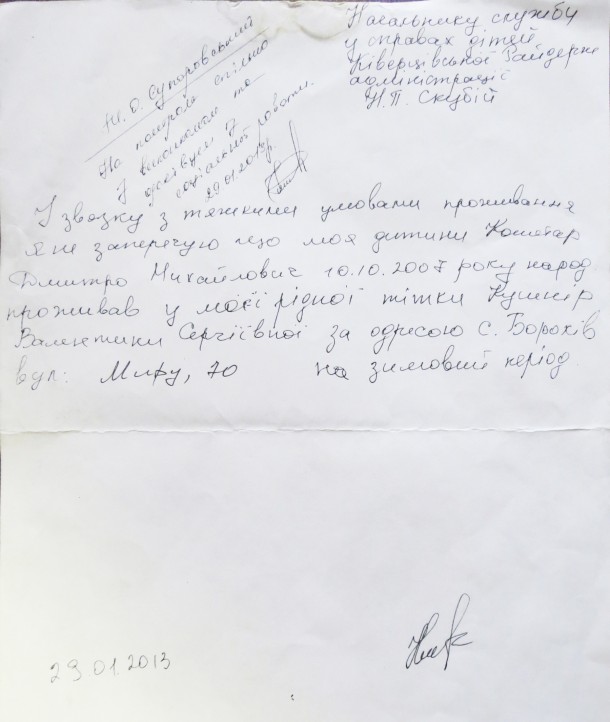 Начальнику службу
у справах дітей
Ківерцівської Райдерж
адміністрації
Н.П. Скубій
Ю.О. Супоровський
На контроль спільно
з виконкомом та
центром
соціальної роботи.
29.01.2013р.
У звозку з тяжкими умовами проживання
я не заперечую що моя дитини
Дмитро Михайлович 10.10.2007 року народ
проживав у моєї рідної тітки Кушнір
Валентини Сергіївної за адресою с. Борохів
вул: Миру, 70 на зимовий період
29.01.2013